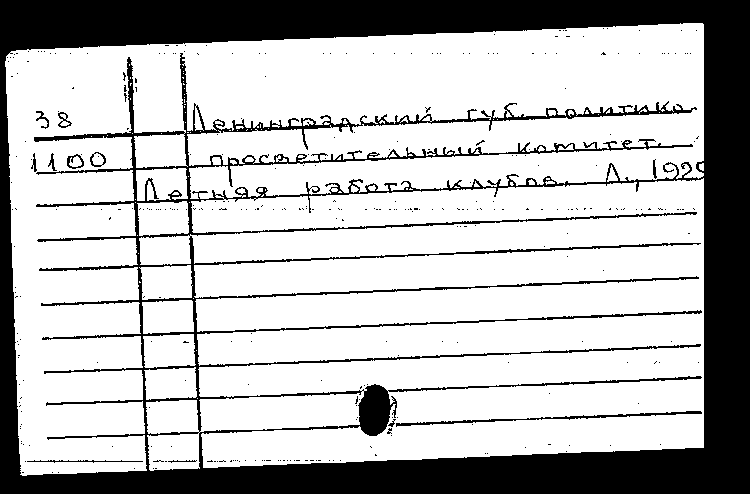 38 Ленинградский губ. политико-
1100 просветительный комитет.
Летняя работа клубов. Л.,